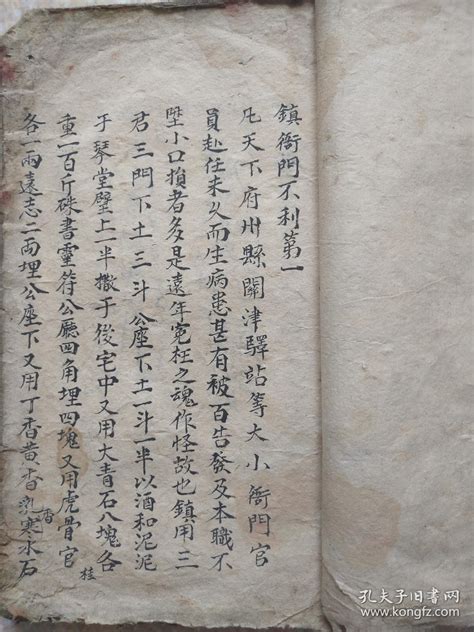 鎮衙門不利第一
凡天下府州縣關津驛站等大小衙門官
員赴任未久而生病患甚有被百告發及本職不
陞小口損者多是遠年冤枉之魂作怪故也鎮用三
君三門下土三斗公座下土一斗一半以酒和泥泥
于琴堂壁上一半撒于後宅中又用大青石八塊各
重一百斤硃書靈符公廳四角埋四塊又用虎骨官桂
各一兩遠志二兩埋公座下又用丁香黄香乳香寒水石
孔夫子旧书网
www.kongfz.com